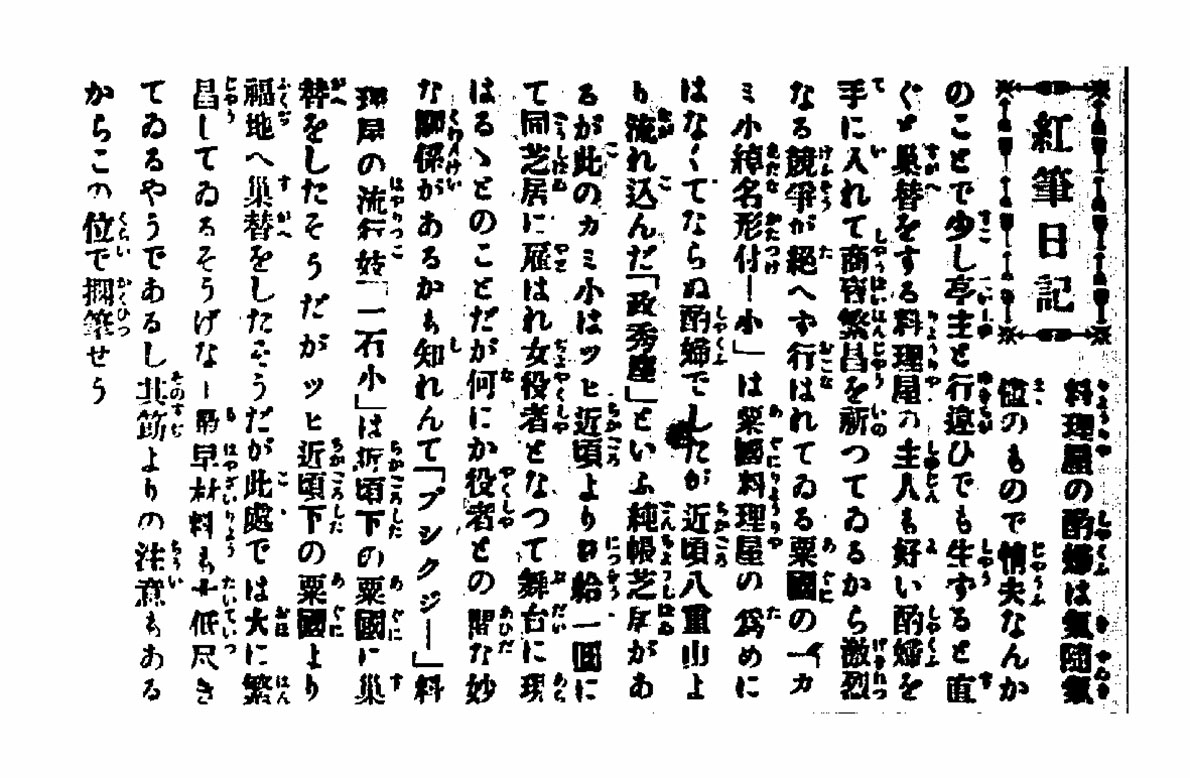 紅筆日記
料理屋の酌婦は氣隨氣
儘のもので情夫なんか
のことで少し亭主と行違ひでも生ずると直
ぐと巣替をする料理屋の主人も好い酌婦を
手に入れて商賣繁昌を祈つてゐるから激烈
なる競爭が絕へず行はれてゐる粟國の「カ
ミ小綽名形付ー小」は粟國料理屋の爲めに
はなくてならぬ酌婦でしたが近頃八重山よ
り流れ込んだ「政秀座」といふ純帳芝居があ
るが此のカミ小はツヒ近頃より日給一圓に
て同芝居に雇はれ女役者となつて舞台に現
はるゝとのことだが何にか役者との間な妙
な關係があるかも知れんて「プシクジー」料
理屋の流行妓「一石小」は近頃下の粟國に巣
替をしたそうだがツヒ近頃下の粟國より
福地へ巣替をしたそうだが此處では大に繁
昌してゐるそうげなー爾早材料も大低尽き
てゐるやうであるし其筋よりの注意もある
からこの位で擱筆せう